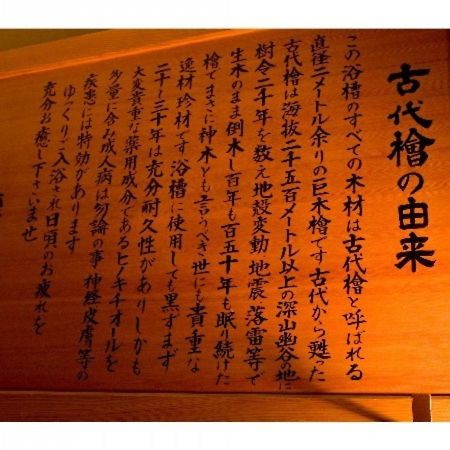 古代檜の由来
この浴槽のすべての木材は古代檜と呼ばれる
直径二メートル余りの巨木檜です古代から甦った
古代檜は海抜二千五百メートル以上の深山幽谷の地に
樹令二千年を数え地殻変動 地震 落雷等で
生木のまま倒木し百年も百五十年も眠り続けた
檜でまさに神木とも言うべき世にも貴重な
逸材珍材です 浴槽に使用しても黒ずまず
二十〜三十年は充分耐久性がありしかも
大変貴重な薬用成分であるヒノキチオールを
多量に含み成人病は勿論の事 神経皮膚等の
疾患には特効があります
ゆっくりご入浴され日頃のお疲れを
充分お癒し下さいませ